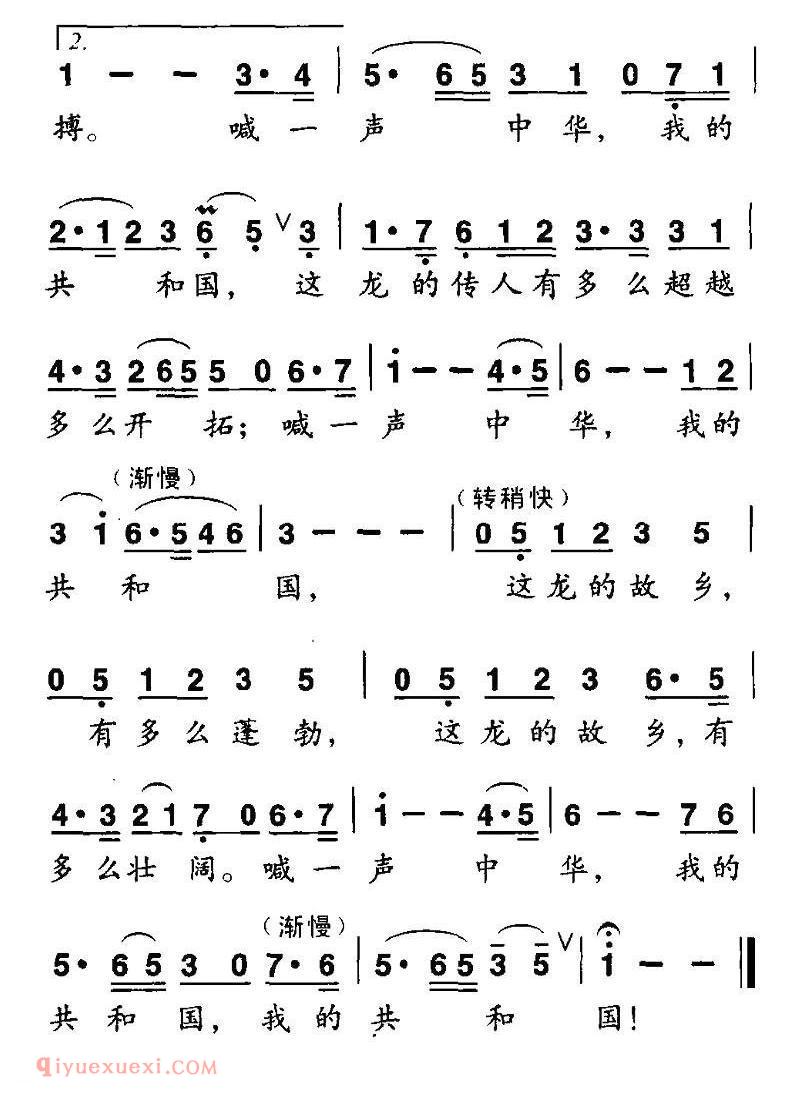 2.
1 － － 3· 4 | 5· 6 5 3 1 0 7 1 |
搏。 喊一声 中华， 我的
2· 1 2 3 6 5 ∨ 3 | 1· 7 6 1 2 3· 3 3 1 |
共 和国， 这龙的传人有多么超越
4· 3 2 6 5 5 0 6· 7 | 1 － － 4· 5 | 6 － － 1 2 |
多么开 拓；喊一声 中 华， 我的
（渐慢） （转稍快）
3 1 6· 5 4 6 | 3 － － － | 0 5 1 2 3 5 |
共 和 国， 这龙的故乡，
0 5 1 2 3 5 | 0 5 1 2 3 6· 5 |
有多么蓬勃， 这龙的故乡，有
4· 3 2 1 7 0 6· 7 | 1 － － 4· 5 | 6 － － 7 6 |
多么壮 阔。喊一声 中 华， 我的
（渐慢）
5· 6 5 3 0 7· 6 | 5· 6 5 3 5 ∨ | 1 － － ‖
共和国，我的共 和 国！
qiyuexuexi.com